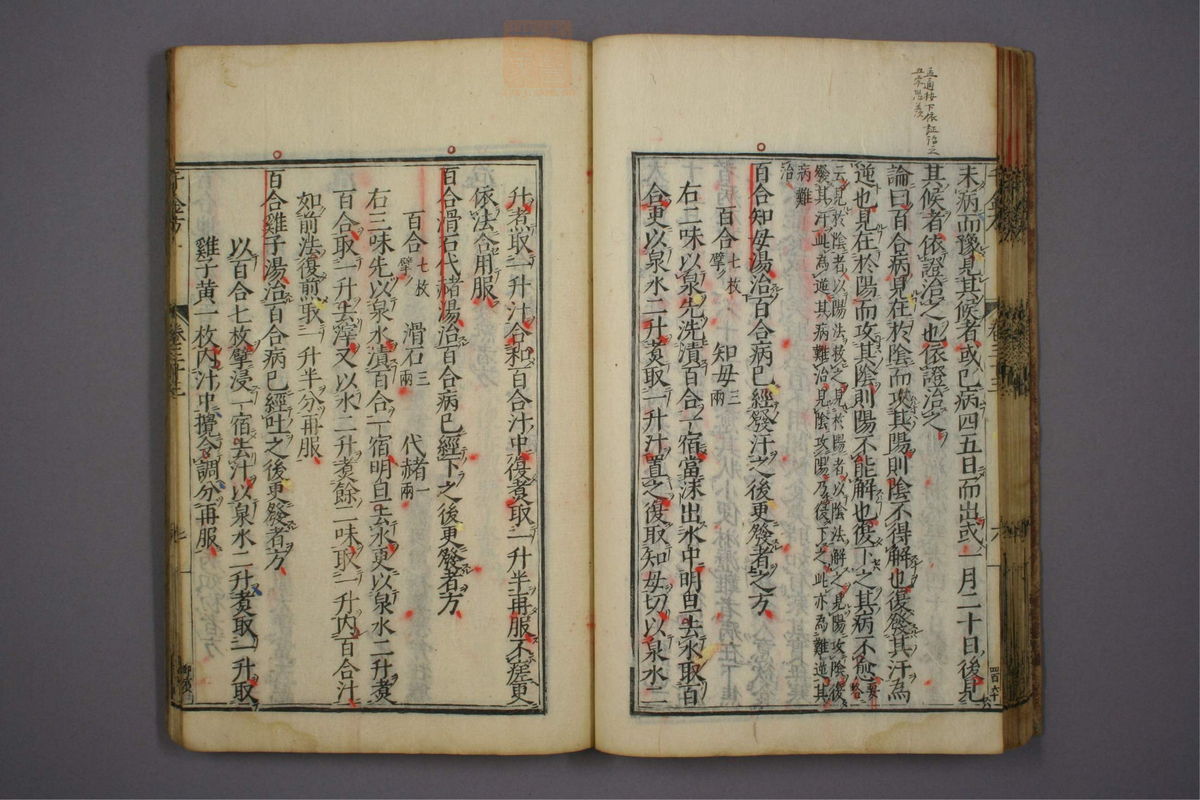 未病而豫見其候者或已病四五日而出或一月二十日後見
其候者依證治之也依證治之
論曰百合病見在於陰而攻其陽則陰不得解也復發其汗為
逆也見在於陽而攻其陰則陽不能解也復下之其病不愈
云見於陰者以陽法救之見於陽者以陰法解之見陽攻陰復
發其汗此為逆其病難治見陰攻陽乃復下之此亦為逆其
病難
治
百合知母湯治百合病已經發汗之後更發者之方
百合七枚擘 知母三兩
右二味以泉先洗漬百合一宿當沫出水中明旦去水取百
合更以泉水二升煮取一升汁置之復取知母切以泉水二
升煮取一升汁合和百合汁中復煮取一升半再服不瘥更
依法合用服
百合滑石代赭湯治百合病已經下之後更發者方
百合七枚擘 滑石三兩 代赭一兩
右三味先以泉水漬百合一宿明旦去水更以泉水二升煮
百合取一升去滓又以水二升煮餘二味取一升內百合汁
如前法復煎取一升半分再服
百合雞子湯治百合病已經吐之後更發者方
以百合七枚擘浸一宿去汁以泉水二升煮取一升取
雞子黃一枚內汁中攪令調分再服